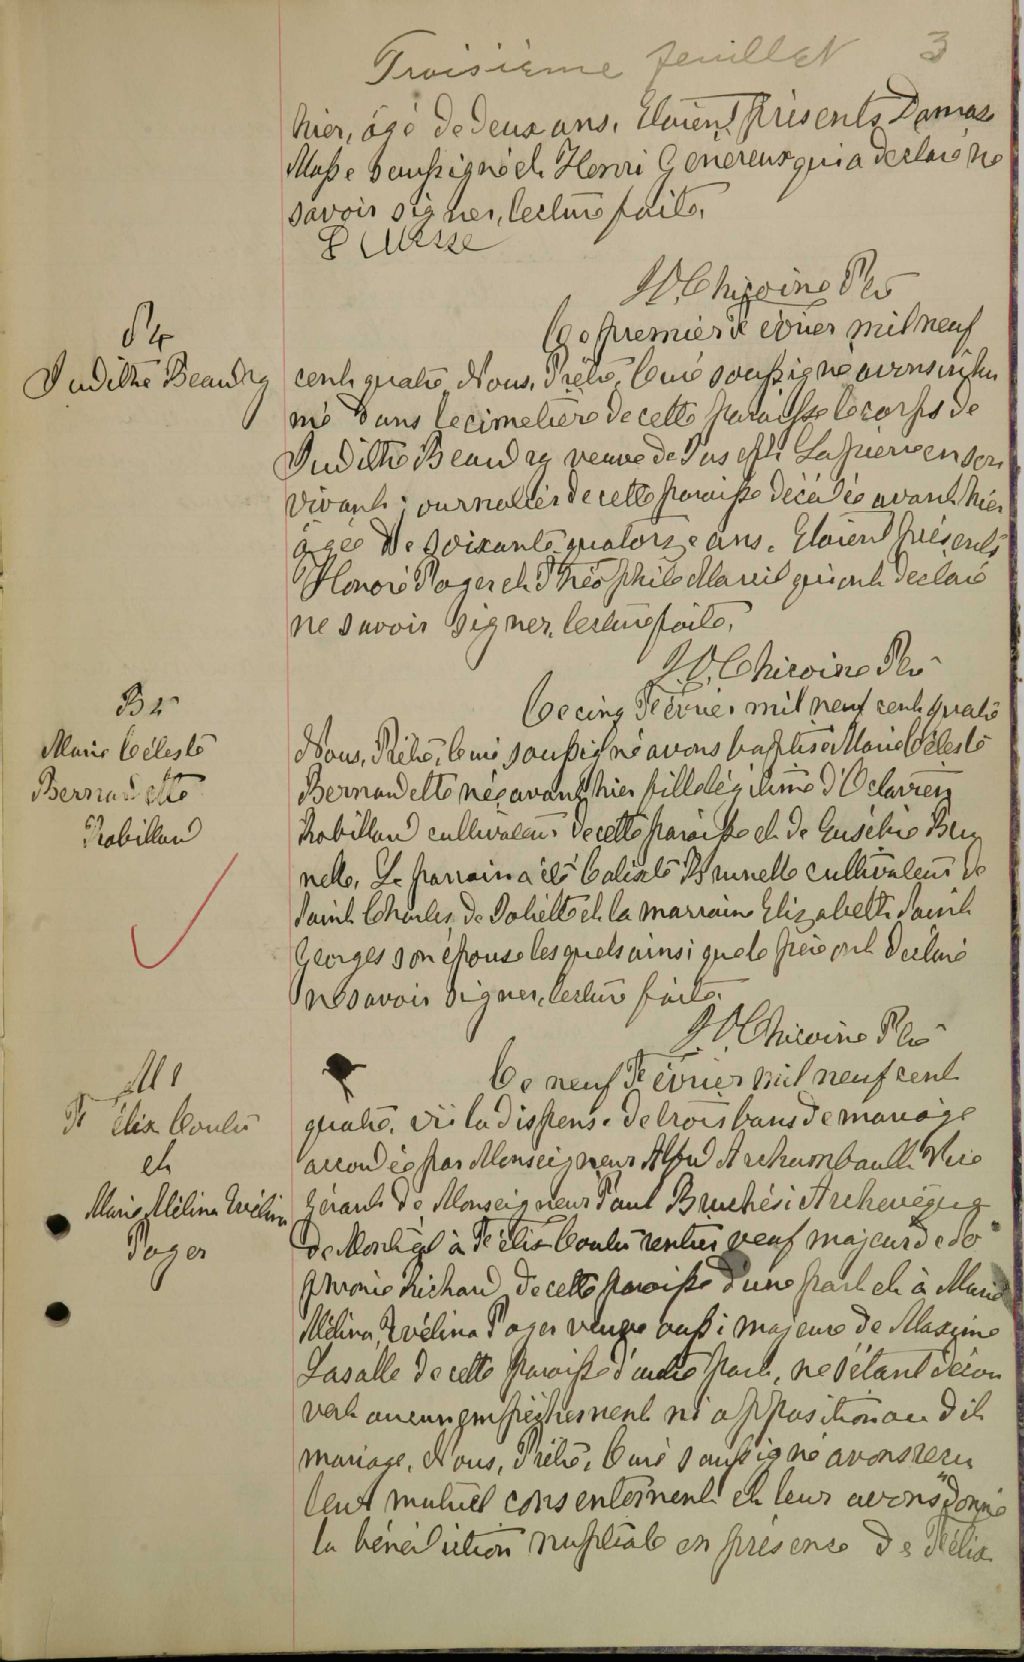 Troisième feuillet 3
hier, âgé de deux ans. Etaient présents Damase
Masse soussigné et Henri Généreux qui a déclaré ne
savoir signer, lecture faite.
D Masse
J.O. Chicoine Ptre
S 4
Judithe Beaudry
Le premier Février mil neuf
cent quatre, Nous, Prêtre, Curé soussigné avons inhu
mé dans le cimetière de cette paroisse le corps de
Judithe Beaudry veuve de Joseph Lapierre en son
vivant journalier de cette paroisse décédée avant hier
âgée de soixante quatorze ans. Etaient présents
Honoré Poger et Théophile Marcil qui ont déclaré
ne savoir signer, lecture faite.
J.O. Chicoine Ptre
B 5
Marie Céleste
Bernardette
Robillard
Le cinq Février mil neuf cent quatre
Nous, Prêtre, Curé soussigné avons baptisé Marie Céleste
Bernardette née avant hier fille légitime d'Octavien
Robillard cultivateur de cette paroisse et de Eusébie Bru
nelle. Le parrain a été Calixte Brunelle cultivateur de
Saint Charles de Joliette et la marraine Elizabeth Saint
Georges son épouse lesquels ainsi que le père ont déclaré
ne savoir signer, lecture faite.
J.O. Chicoine Ptre
M 1
Félix Coulu
et
Marie Mélina Evélina
Poger
Le neuf Février mil neuf cent
quatre, vu la dispense de trois bans de mariage
accordée par Monseigneur Alfred Archambault Vice
gérant de Monseigneur Paul Bruchési Archevêque
de Montréal à Félix Coulu rentier veuf majeur de So
phronie Richard de cette paroisse d'une part et à Marie
Mélina, Evélina Poger veuve aussi majeure de Maxime
Lasalle de cette paroisse d'autre part, ne s'étant décou
vert aucun empêchement ni opposition au dit
mariage, Nous, Prêtre, Curé soussigné avons reçu
leur mutuel consentement et leur avons donné
la bénédiction nuptiale en présence de Félix